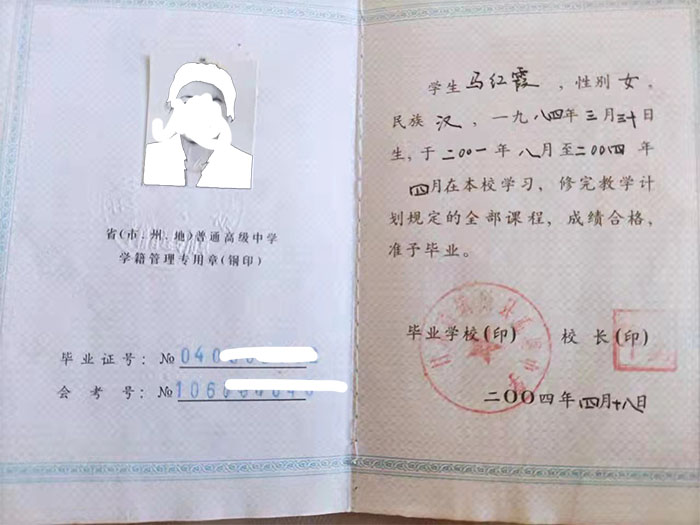 省(市、州、地)普通高级中学
学籍管理专用章(钢印)
毕业证号: №040
会考号: №106
学生马红霞,性别女,
民族汉,一九八四年三月三十日
生,于二〇〇一年八月至二〇〇四年
四月在本校学习,修完教学计
划规定的全部课程,成绩合格,
准予毕业。
毕业学校(印) 校长(印)
二〇〇四年四月十八日